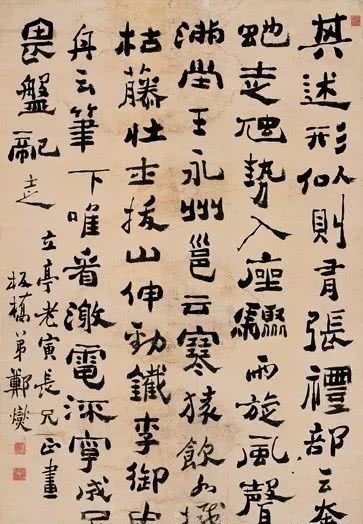 其述形似則有張禮部云奔
虵走虺勢入座驟雨旋風聲
滿堂王永州邕云寒猿飲
枯藤壯士拔山伸勁鐵李御史
舟云筆下唯看激電流字成
畏盤龍走
立亭老寅長兄正畫
板橋弟鄭燮